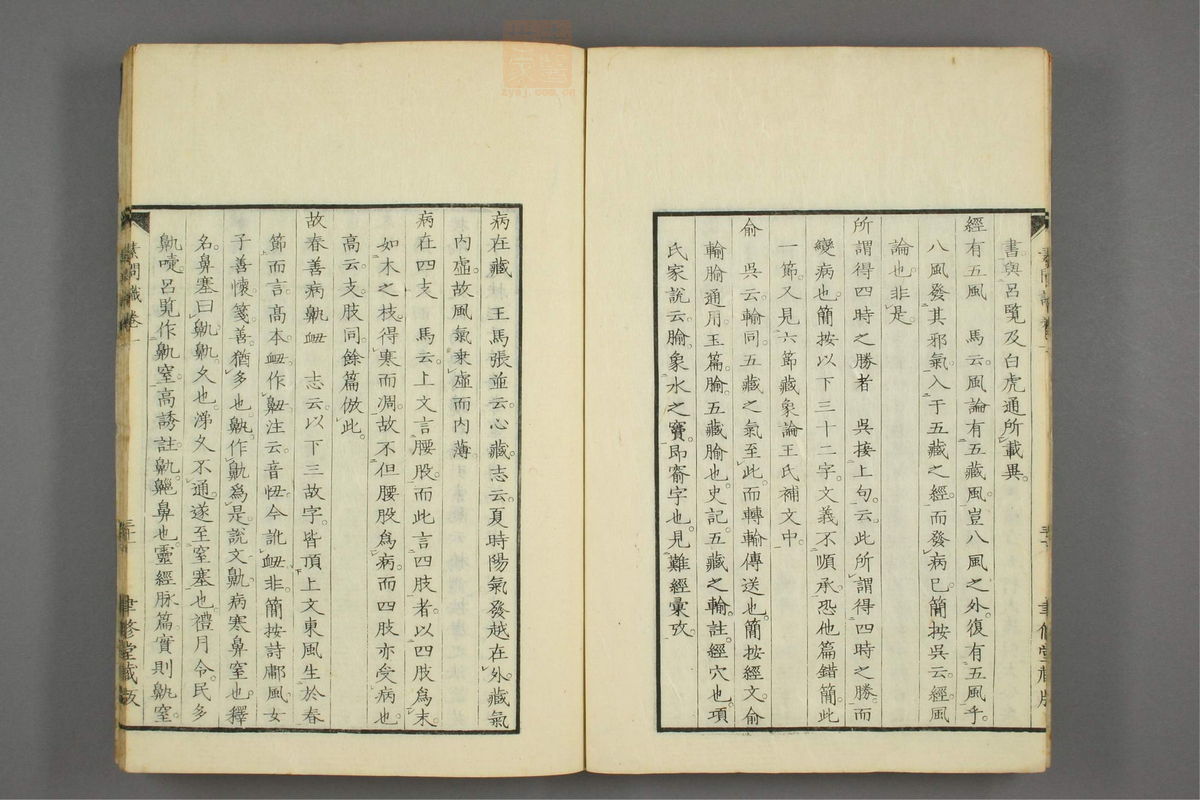 書與呂覽及白虎通所載異。
經有五風　馬云。風論有五藏風。豈八風之外。復有五風乎。
八風發其邪氣。入于五藏之經。而發病已。簡按吳云。經風
論也。非是。
所謂得四時之勝者　吳接上句云。此所謂得四時之勝。而
變病也。簡按以下三十二字。文義不順承。恐他篇錯簡。此
一節。又見六節藏象論王氏補文中。
俞　吳云。輸同。五藏之氣至此。而轉輸傳送也。簡按經文俞
輸腧通用。玉篇。腧。五藏腧也。史記。五藏之輸。註。經穴也。項
氏家說云。腧。象水之竇。即窬字也。見難經彙攷。
病在藏　王馬張並云。心藏。志云。夏時陽氣發越在外。藏氣
內虛。故風氣乘虛而內薄。
病在四支　馬云。上文言腰股。而此言四肢者。以四肢爲末。
如木之枝。得寒而凋。故不但腰股爲病。而四肢亦受病也。
高云。支肢同。餘篇倣此。
故春善病鼽衄　志云。以下三故字。皆頂上文東風生於春
節而言。高本。衄。作䶊。注云。音忸。今訛衄。非。簡按詩鄘風。女
子善懷。箋。善。猶多也。鼽。作鼽爲是。說文。鼽。病寒鼻窒也。釋
名。鼻塞曰鼽。鼽。久也。涕久不通。遂至窒塞也。禮月令。民多
鼽嚏。呂覽作鼽窒。高誘註。鼽。齆鼻也。靈經脉篇。實則鼽窒。
素問識卷一
聿修堂藏版